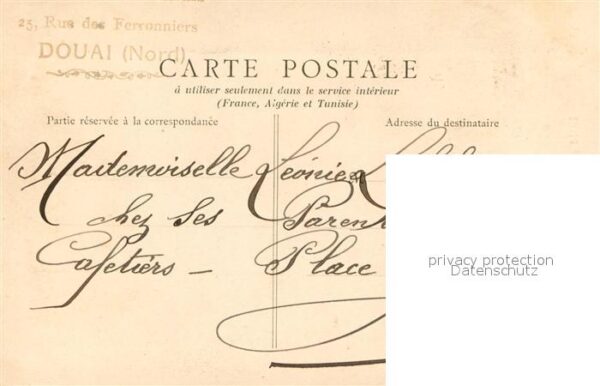 25, Rue des Ferronniers
DOUAI (Nord)
CARTE POSTALE
à utiliser seulement dans le service intérieur
(France, Algérie et Tunisie)
Partie réservée à la correspondance
Adresse du destinataire
Mademoiselle Léonie
chez ses Paren
Cafetiers - Place
privacy protection
Datenschutz